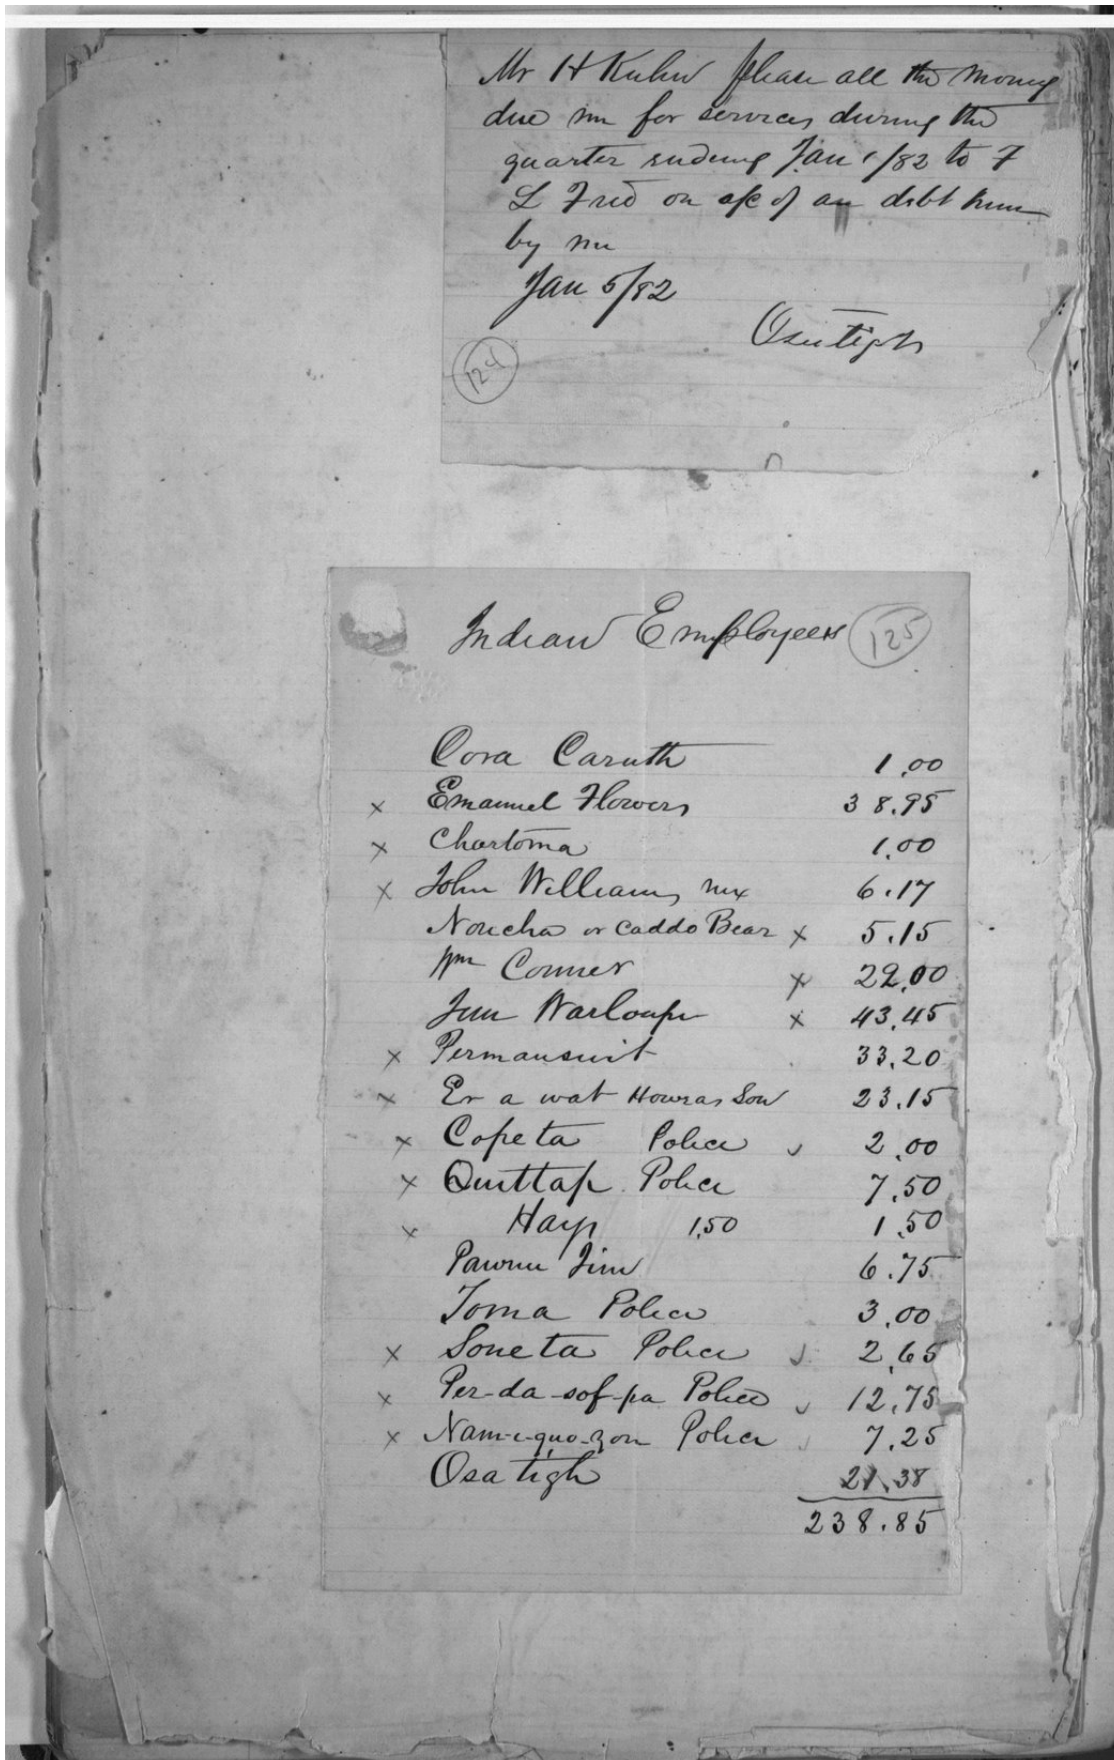 Mr H Kuhn please all the money
due me for services during the
quarter ending Jan 1/82 to F
L Fred on a/c of an debt
by me
Jan 5/82
Osutigh
124
Indian Employees 125
Cora Caruth 1.00
x Emanuel Flowers 38.95
x Chartoma 1.00
x John Williams mx 6.17
Noucha or Caddo Bear x 5.15
Wm Conner x 22.00
Jim Warloupe x 43.45
x Permansuit 33.20
x Er a wat Howras Son 23.15
x Copeta Police ✓ 2.00
x Quittap Police 7.50
x Hays 1.50 1.50
Pawnee Jim 6.75
Toma Police 3.00
x Soneta Police ✓ 2.65
x Per-da-sof-pa Police ✓ 12.75
x Nam-e-quo-zon Police ✓ 7.25
Osatigh 21.38
238.85